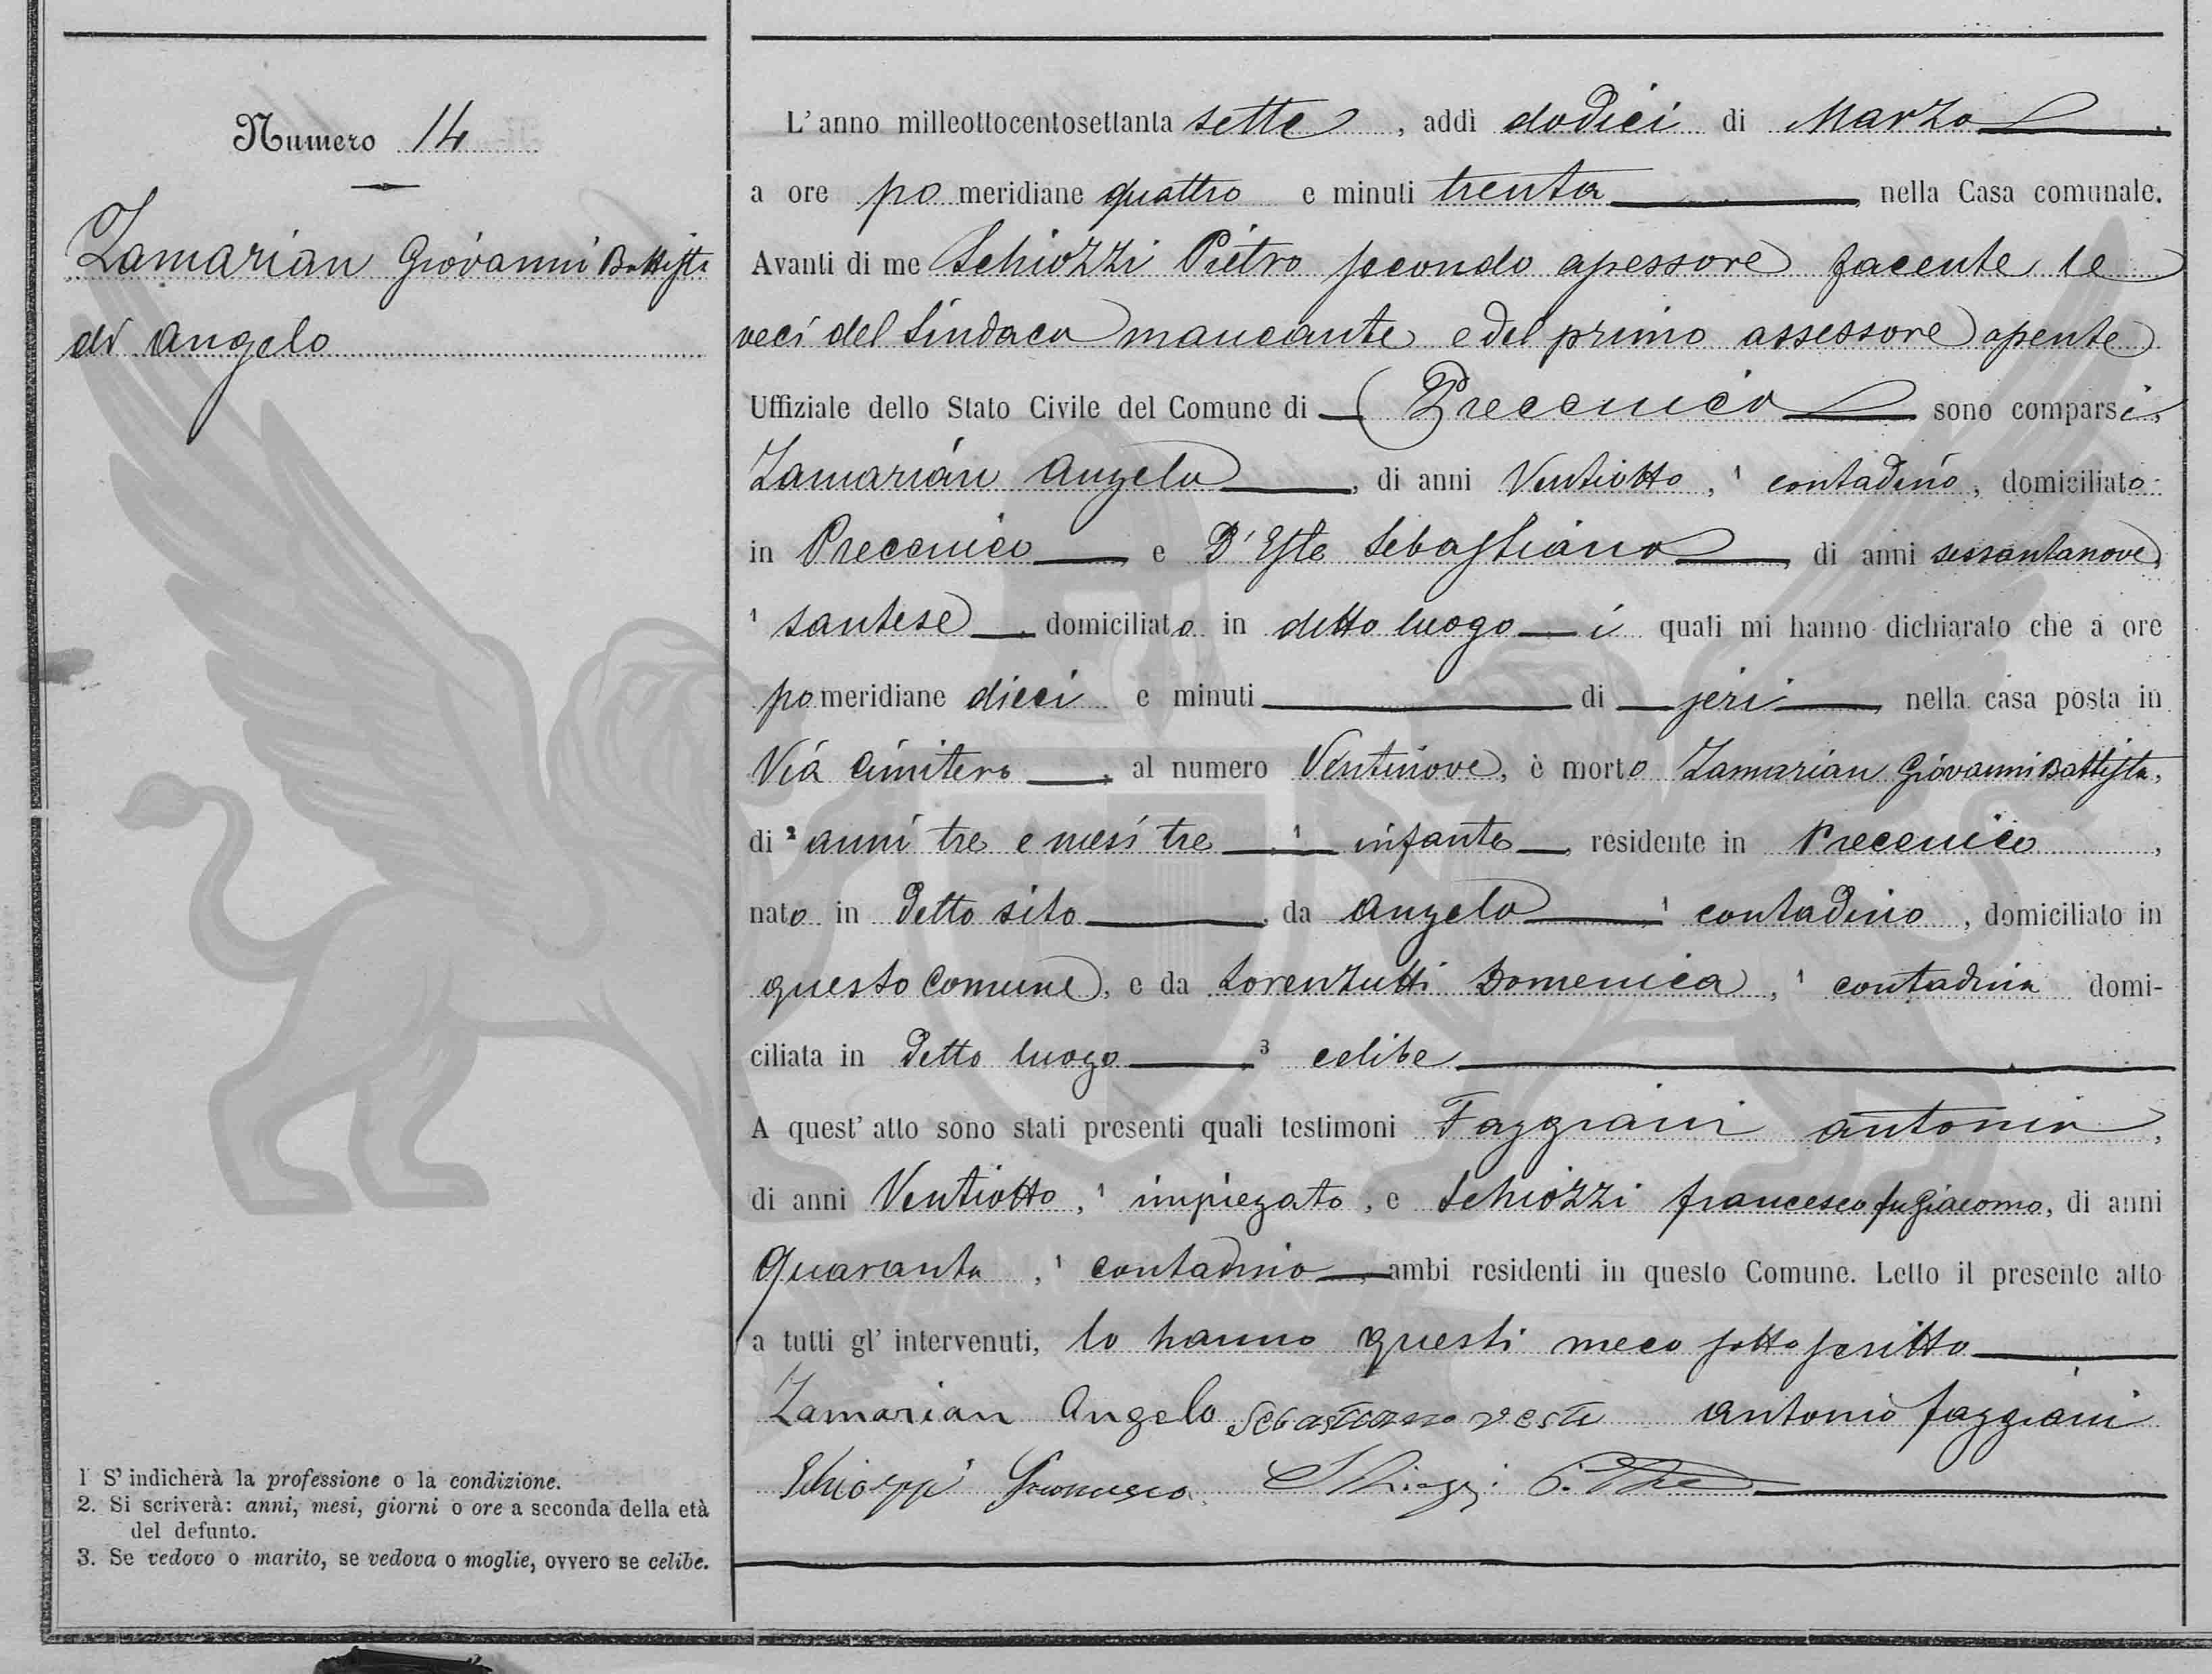 Numero 14
Zamarian Giovanni Battista
di Angelo
L'anno milleottocentosettanta sette, addì dodici di Marzo
a ore pomeridiane quattro e minuti trenta, nella Casa comunale.
Avanti di me Schiozzi Pietro secondo assessore facente le
veci del Sindaco mancante e del primo assessore assente
Uffiziale dello Stato Civile del Comune di Precenico sono comparsi,
Zamarian Angelo, di anni Ventiotto, ¹ contadino, domiciliato
in Precenico e D'Este Sebastiano, di anni sessantanove,
¹ santese, domiciliato in detto luogo i quali mi hanno dichiarato che a ore
pomeridiane dieci e minuti di jeri, nella casa posta in
Via Cimitero, al numero Ventinove, è morto Zamarian Giovanni Battista,
di ² anni tre e mesi tre, ¹ infante, residente in Precenico,
nato in detto sito, da Angelo, ¹ contadino, domiciliato in
questo Comune, e da Lorenzutti Domenica, ¹ contadina domi-
ciliata in detto luogo, ³ celibe
A quest' atto sono stati presenti quali testimoni Faggiani Antonio,
di anni Ventiotto, ¹ impiegato, e Schiozzi Francesco fu Giacomo, di anni
quaranta, ¹ contadino, ambi residenti in questo Comune. Letto il presente atto
a tutti gl' intervenuti, lo hanno questi meco sottoscritto
Zamarian Angelo Sebastiano Antonio Faggiani
Francesco
1 S'indicherà la professione o la condizione.
2. Si scriverà: anni, mesi, giorni o ore a seconda della età
del defunto.
3. Se vedovo o marito, se vedova o moglie, ovvero se celibe.